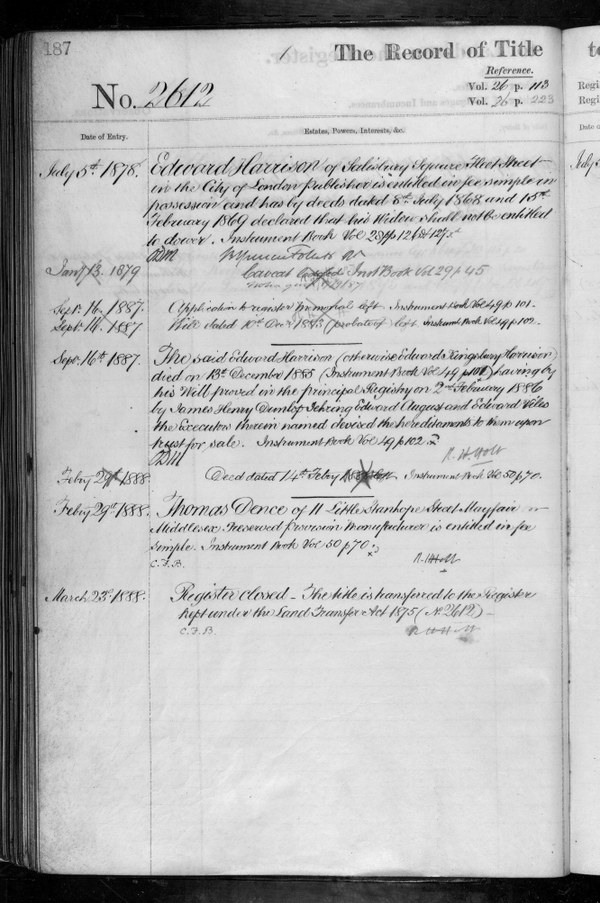 187
The Record of Title
Reference.
No. 2612
Vol. 26 p. 113
Vol. 26 p. 223
Date of Entry.
Estates, Powers, Interests, &c.
July 5th 1878. Edward Harrison of Salisbury Square Fleet Street
in the City of London Publisher is entitled in fee simple in
possession and has by deeds dated 8th July 1868 and 15th
February 1869 declared that his Widow shall not be entitled
to dower. Instrument Book Vol 28 pp 126
Jany 13. 1879 Caveat Inst Book Vol 29 p 45
Sept. 16. 1887. Application to register left. Instrument Book Vol 49 p 101.
Sept. 16. 1887 Will dated 10th Decr (probate of) left. Instrumt Book Vol 49 p 102.
Sepr 16th 1887. The said Edward Harrison (otherwise Edward Kingsbury Harrison)
died on 13th December 1885 (Instrument Book Vol 49 p 101) having by
his Will proved in the principal Registry on 2nd February 1886
by James Henry Dunlop Edward August and Edward
the Executors therein named devised the hereditaments to them upon
trust for sale. Instrument Book Vol 49 p 102.
R. H. Holt
Febry 29th 1888. Deed dated 14th Febry left Instrument Book Vol 50 p 70.
Febry 29th 1888. Thomas Dence of 11 Little Stanhope Street Mayfair
Middlesex Preserved provision Manufacturer is entitled in fee
simple. Instrument Book Vol 50 p 70
C.F.B.
R. H. Holt
March 23rd 1888. Register closed - The title is transferred to the Register
kept under the Land Transfer Act 1875 (No. 2612)
C.F.B.
R. H. Holt